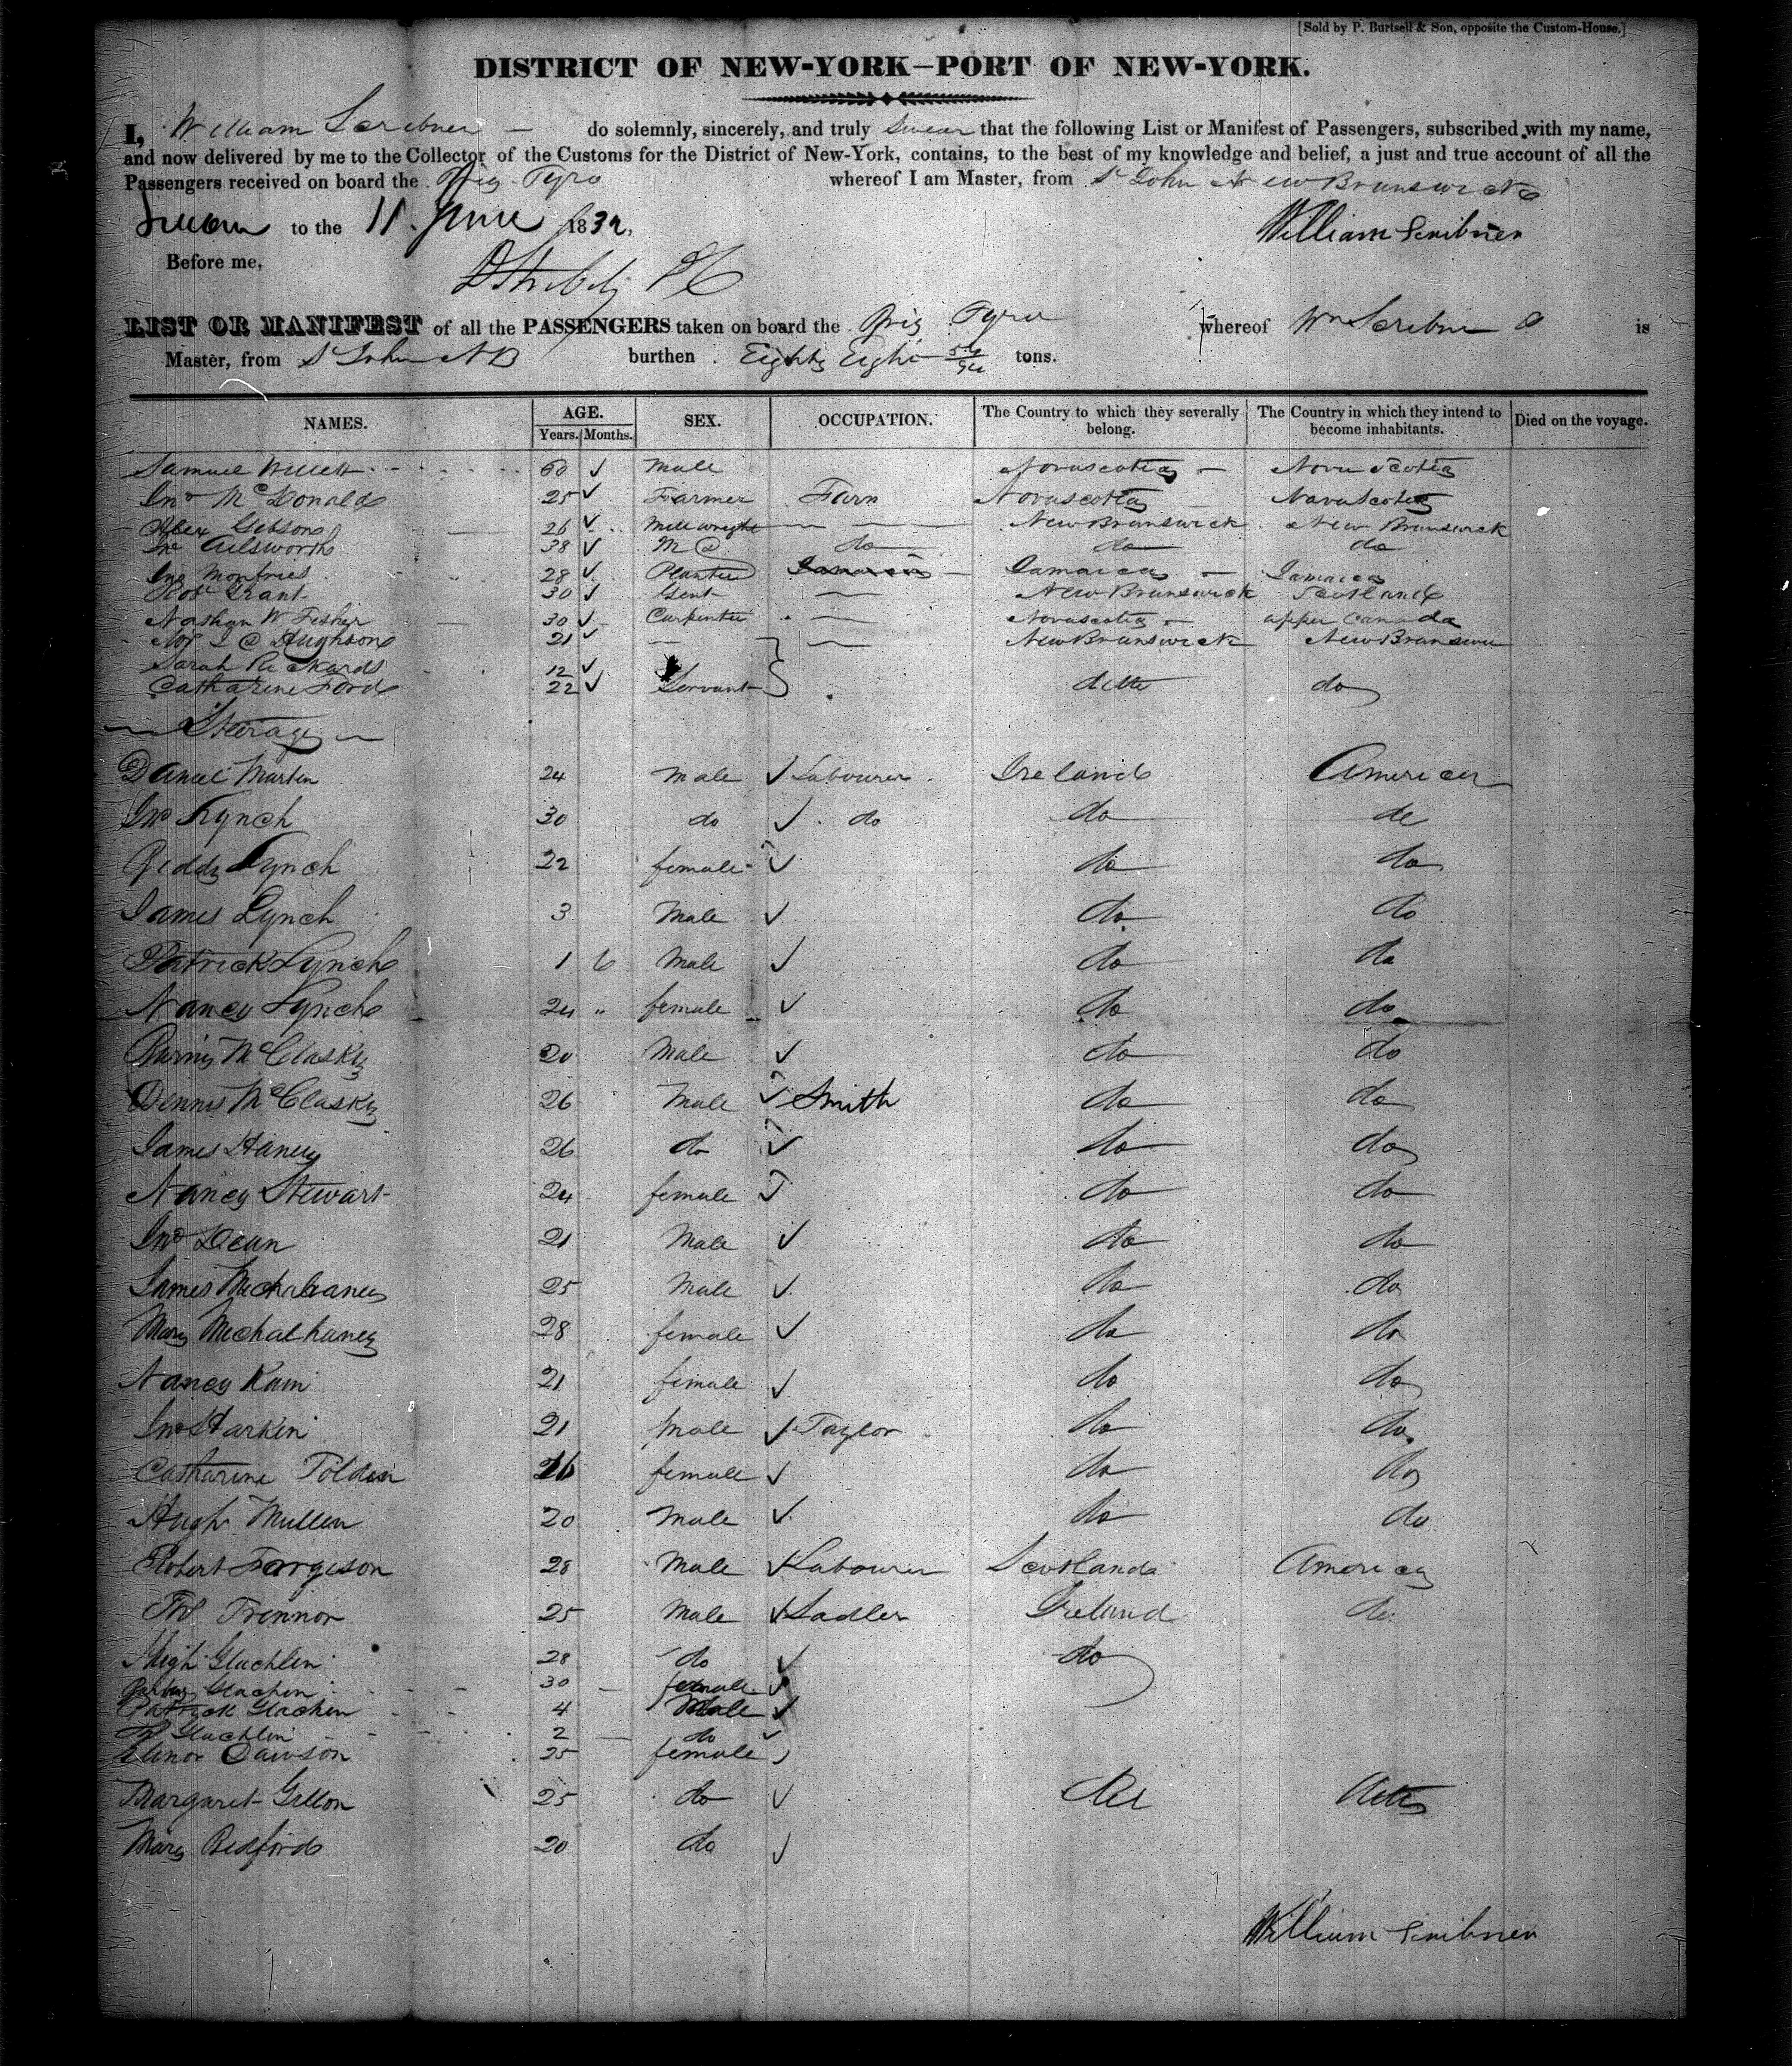 [Sold by P. Burtsell & Son, opposite the Custom-House.]
DISTRICT OF NEW-YORK—PORT OF NEW-YORK.
I, William Scribner — do solemnly, sincerely, and truly Swear that the following List or Manifest of Passengers, subscribed with my name,
and now delivered by me to the Collector of the Customs for the District of New-York, contains, to the best of my knowledge and belief, a just and true account of all the
Passengers received on board the Brig Tyro whereof I am Master, from St John New Brunswick
Sworn to the 11 June 1832, William Scribner
Before me,
LIST OR MANIFEST of all the PASSENGERS taken on board the Brig Tyro whereof Wm Scribner is
Master, from St John NB burthen Eighty Eight tons.
NAMES. AGE. SEX. OCCUPATION. The Country to which they severally belong. The Country in which they intend to become inhabitants. Died on the voyage.
Years. Months.
Samuel Willett 60 Male Novascotia Nova Scotia
Jno McDonald 25 Farmer Farn Novascotia NovaScotia
Alex Gibson 26 Millwright New Brunswick New Brunswick
Jno Ailsworth 38 do do do
Jno Monfries 28 Planter Jamaica Jamaica
Robt Grant 30 Gent New Brunswick Scotland
Nathan W Fisher 30 Carpenter Novascotia upper Canada
Hughson 21 — New Brunswick New Brunswi
Sarah Rickards 12
Catharine Ford 22 Servant ditto do
Steerage
Daniel Martin 24 Male Labourer Ireland America
Jno Lynch 30 do do do do
Biddy Lynch 22 female do do
James Lynch 3 Male do do
Patrick Lynch 1 6 Male do do
Nancy Lynch 24 " female do do
Barney McClasky 20 Male do do
Dennis McClasky 26 Male Smith do do
James Haney 26 do do do
Nancy Stewart 24 female do do
Jno Dean 21 Male do do
James 25 Male do do
Mary Michalhaney 28 female do do
Nancy Kain 21 female do do
Jno Harkin 21 Male Taylor do do
Catharine Tolden 26 female do do
Hugh Mullen 20 Male do do
Robert Fargison 28 Male Labourer Scotland America
Trennor 25 Male Sadler Ireland do
Hugh Glachlin 28 do do
Glachen 30 female
Patrick Glachen 4 Male
Glachlin 2 do
Elinor Dawson 25 female
Margaret Gillon 25 do
Mary Bedford 20 do
William Scribner